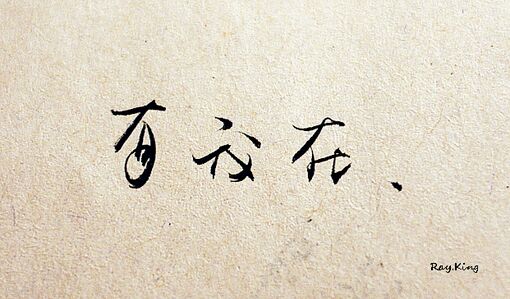 有我在、
Ray.King